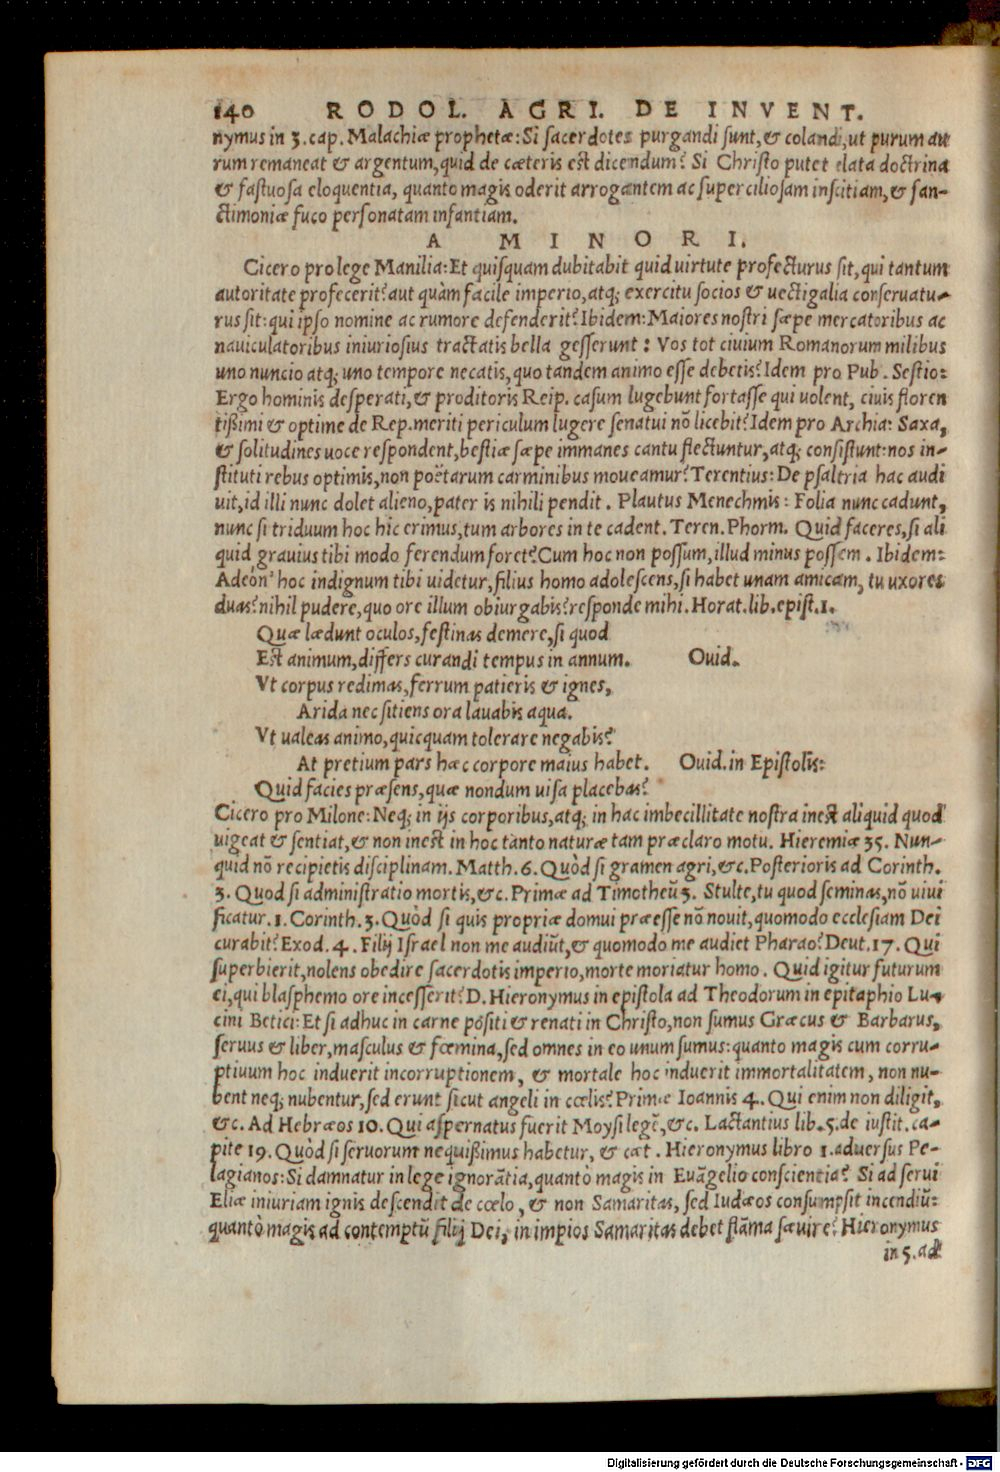 140 RODOL. AGRI. DE INVENT.
nymus in 3. cap. Malachiæ prophetæ: Si sacerdotes purgandi sunt, & colandi, ut purum au
rum remaneat & argentum, quid de cæteris est dicendum? Si Christo putet elata doctrina
& fastuosa eloquentia, quanto magis oderit arrogantem ac superciliosam inscitiam, & san-
ctimoniæ fuco personatam infantiam.
A MINORI.
Cicero pro lege Manilia: Et quisquam dubitabit quid virtute profecturus sit, qui tantum
autoritate profecerit? aut quàm facile imperio, atq; exercitu socios & uectigalia conseruatu-
rus sit: qui ipso nomine ac rumore defenderit? Ibidem: Maiores nostri sæpe mercatoribus ac
nauiculatoribus iniuriosius tractatis bella gesserunt: Vos tot ciuium Romanorum milibus
uno nuncio atq; uno tempore necatis, quo tandem animo esse debetis? Idem pro Pub. Sestio:
Ergo hominis desperati, & proditoris Reip. casum lugebunt fortasse qui uolent, ciuis floren
tißimi & optime de Rep. meriti periculum lugere senatui nõ licebit? Idem pro Archia: Saxa,
& solitudines uoce respondent, bestiæ sæpe immanes cantu flectuntur, atq; consistunt: nos in-
stituti rebus optimis, non poëtarum carminibus moueamur? Terentius: De psaltria hac audi
uit, id illi nunc dolet alieno, pater is nihili pendit. Plautus Menechmis: Folia nunc cadunt,
nunc si triduum hoc hic erimus, tum arbores in te cadent. Teren. Phorm. Quid faceres, si ali
quid grauius tibi modo ferendum foret? Cum hoc non possum, illud minus possem. Ibidem:
Adeon' hoc indignum tibi uidetur, filius homo adolescens, si habet unam amicam, tu uxores
duas? nihil pudere, quo ore illum obiurgabis? responde mihi. Horat. lib. epist. 1.
Quæ lædunt oculos, festinas demere, si quod
Est animum, differs curandi tempus in annum. Ouid.
Vt corpus redimas, ferrum patieris & ignes,
Arida nec sitiens ora lauabis aqua.
Vt ualeas animo, quicquam tolerare negabis?
At pretium pars hæc corpore maius habet. Ouid. in Epistolis:
Quid facies præsens, quæ nondum uisa placebas?
Cicero pro Milone: Neq; in ijs corporibus, atq; in hac imbecillitate nostra inest aliquid quod
uigeat & sentiat, & non inest in hoc tanto naturæ tam præclaro motu. Hieremiæ 35. Nun-
quid nõ recipietis disciplinam. Matth. 6. Quòd si gramen agri, &c. Posterioris ad Corinth.
3. Quod si administratio mortis, &c. Primæ ad Timotheũ 3. Stulte, tu quod seminas, nõ uiui
ficatur. 1. Corinth. 3. Quòd si quis propriæ domui præesse nõ nouit, quomodo ecclesiam Dei
curabit? Exod. 4. Filij Israel non me audiũt, & quomodo me audiet Pharao? Deut. 17. Qui
superbierit, nolens obedire sacerdotis imperio, morte moriatur homo. Quid igitur futurum
ei, qui blasphemo ore incesserit? D. Hieronymus in epistola ad Theodorum in epitaphio Lu-
cini Betici: Et si adhuc in carne positi & renati in Christo, non sumus Græcus & Barbarus,
seruus & liber, masculus & fœmina, sed omnes in eo unum sumus: quanto magis cum corru-
ptiuum hoc induerit incorruptionem, & mortale hoc induerit immortalitatem, non nu-
bent neq; nubentur, sed erunt sicut angeli in cœlis? Primæ Ioannis 4. Qui enim non diligit,
&c. Ad Hebræos 10. Qui aspernatus fuerit Moysi legẽ, &c. Lactantius lib. 5. de iustit. ca-
pite 19. Quòd si seruorum nequißimus habetur, & cæt. Hieronymus libro 1. aduersus Pe-
lagianos: Si damnatur in lege ignorãtia, quantò magis in Euãgelio conscientia? Si ad serui
Eliæ iniuriam ignis descendit de cœlo, & non Samaritas, sed Iudæos consumpsit incendiũ:
quantò magis ad contemptũ filij Dei, in impios Samaritas debet flãma sæuire? Hieronymus
in 5. ad
Digitalisierung gefördert durch die Deutsche Forschungsgemeinschaft - DFG